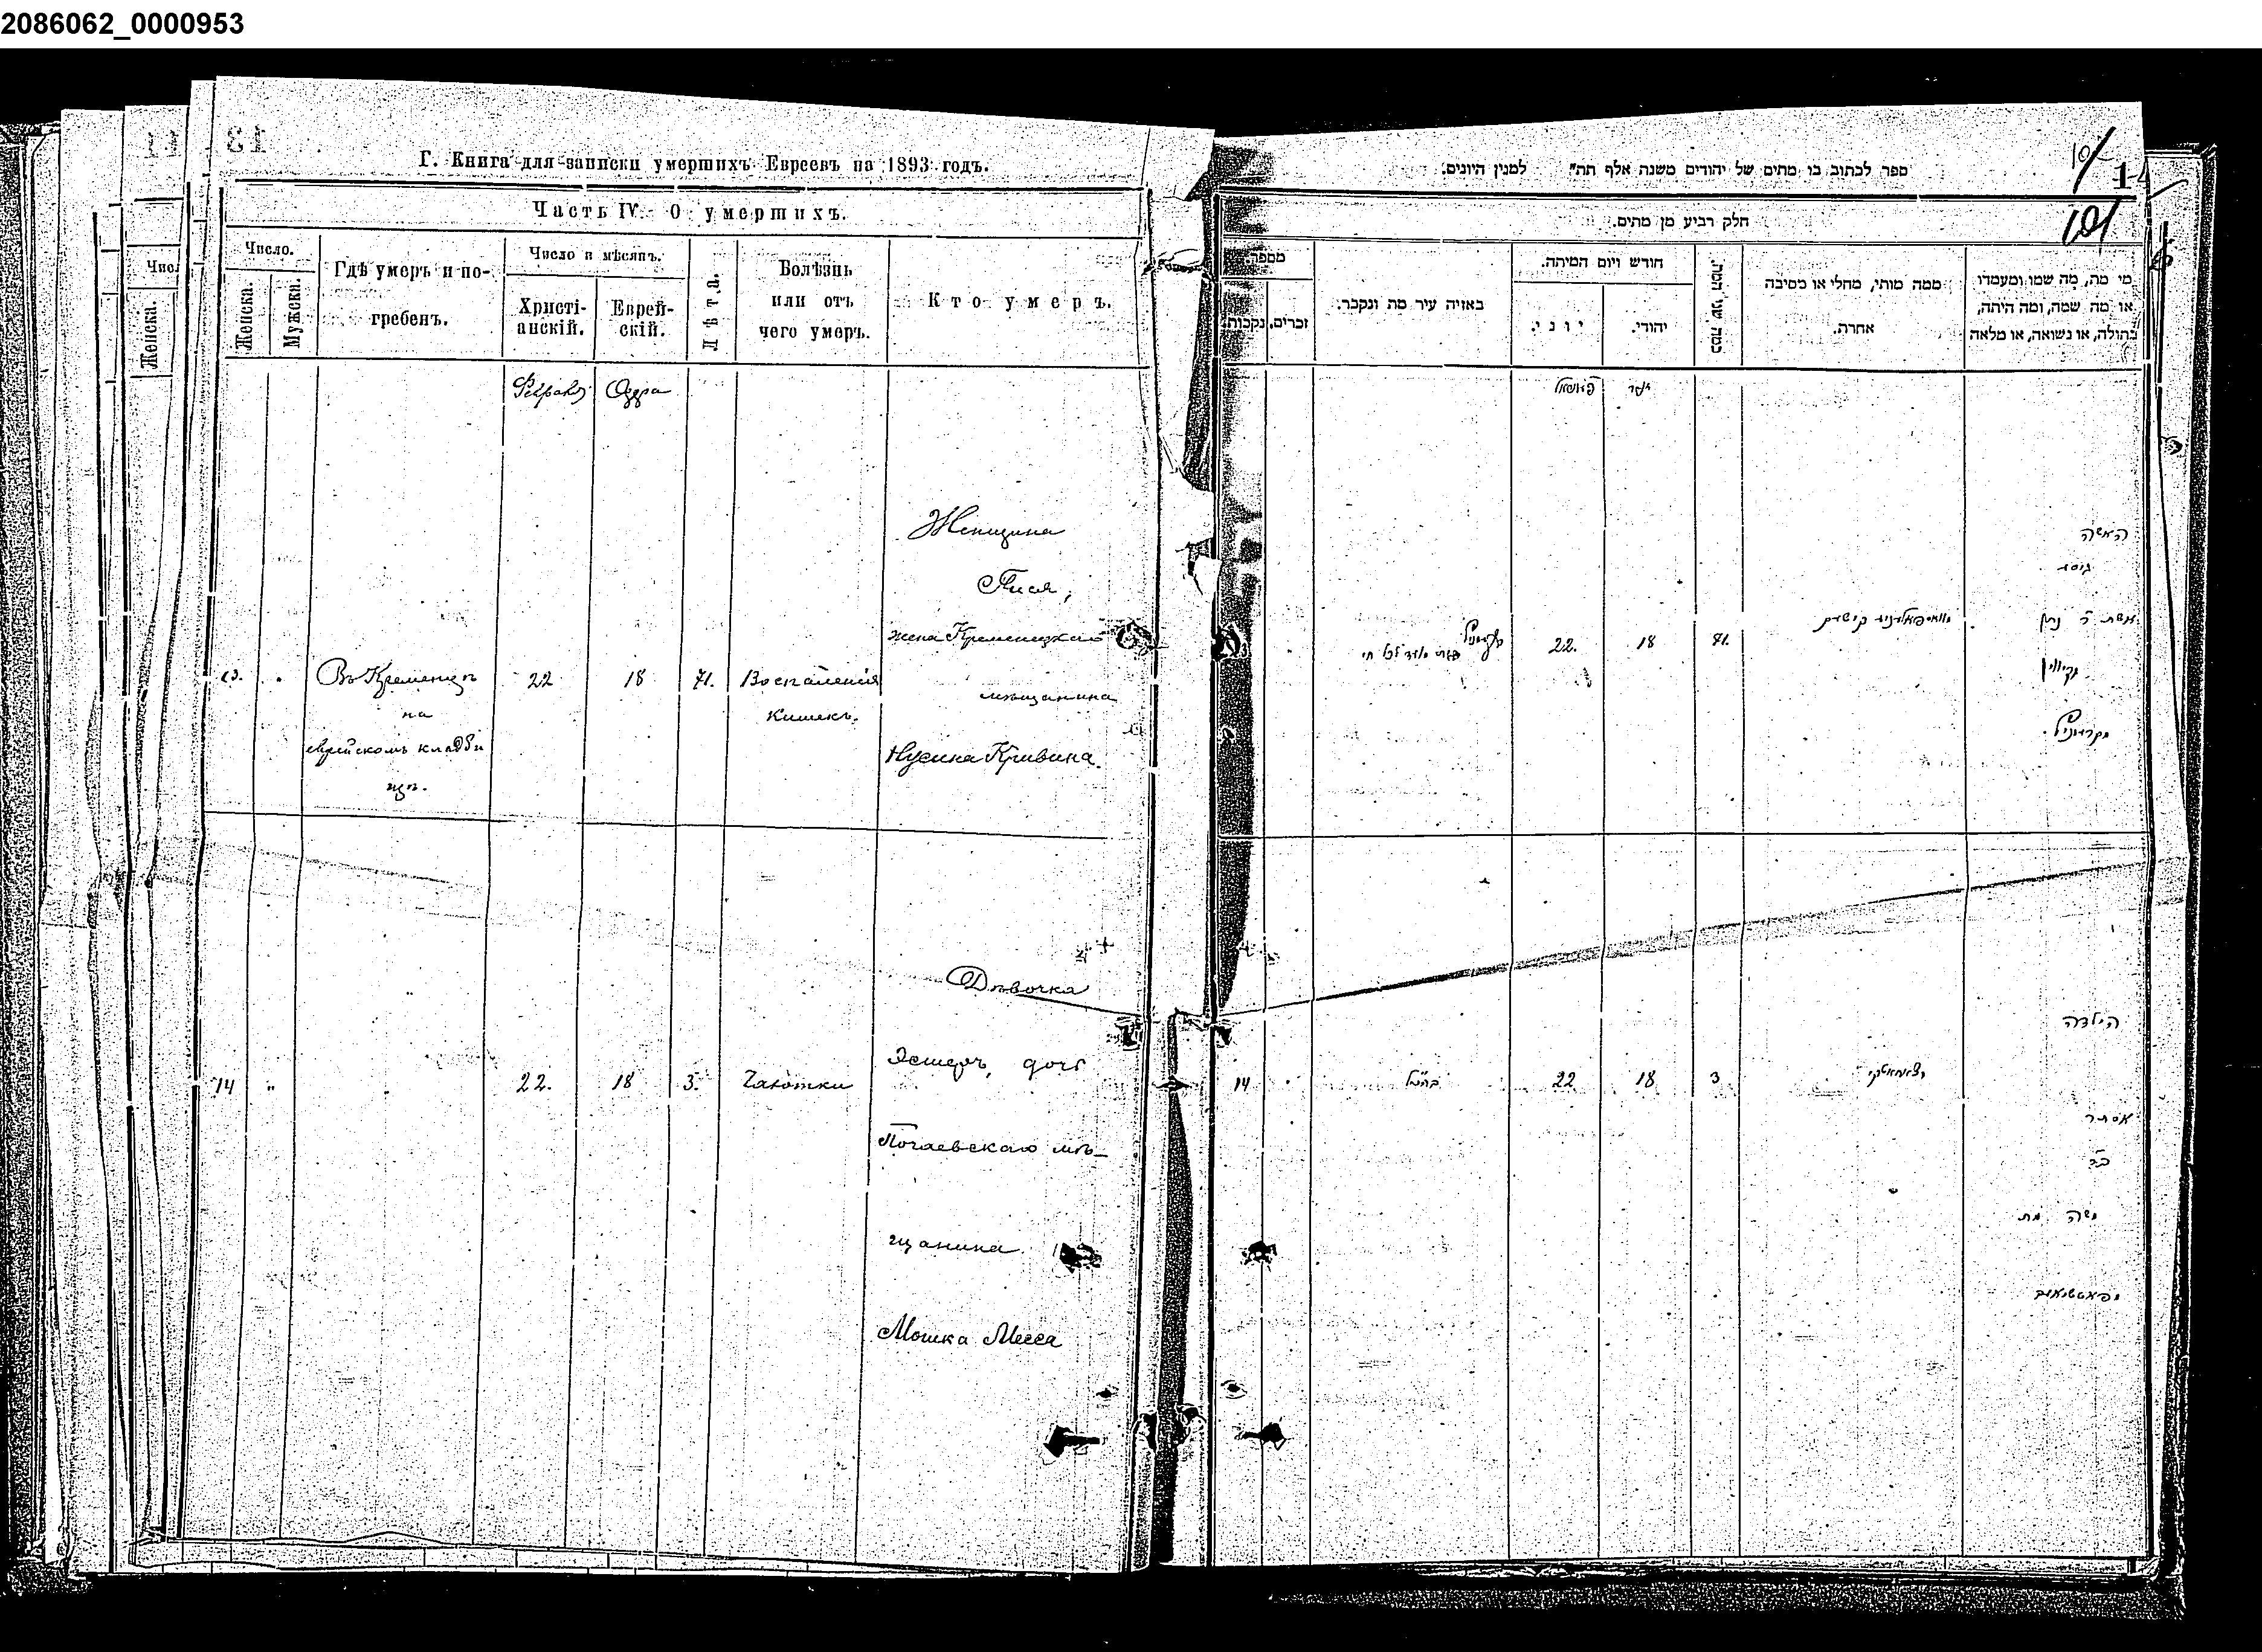 2086062_0000953
Г. Книга для записки умершихъ Евреевъ на 1893 годъ.
Часть IV. О умершихъ.
Число.
Женска.
Мужска.
Гдѣ умеръ и по-
гребенъ.
Число и мѣсяцъ.
Христі-
анскій.
Еврей-
скій.
Лѣта.
Болѣзнь
или отъ
чего умеръ.
Кто умеръ.
Февраль
Адра
13.
Въ Кременцѣ
на
еврейскомъ кладби
щѣ.
22
18
71.
Воспаленія
кишекъ.
Женщина
жена Кременецкаго
мѣщанина
Нусина Кривина.
14
22.
18
3.
Чахотки
Дѣвочка
Эстеръ, дочь
Почаевскаго мѣ-
щанина
Мошка Месса
ספר לכתוב בו מתים של יהודים משנת אלף תת״ למנין היונים.
101
14
חלק רביע מן מתים.
101
מספר.
נקבות.
זכרים.
באיזה עיר מת ונקבר.
חודש ויום המיתה.
יוני.
יהודי.
כמה שני המת.
ממה מותי, מחלי או מסיבה
אחרת.
מי מת, מה שמו ומעמדו
או מה שמה, ומה היתה,
בתולה, או נשואה, או מלאה
אדר
האשה
אשת ר׳ נתן
קריווין
מקרעמניץ
71.
18
22.
הילדה
אסתר
בת
משה מת
3
18
22
14